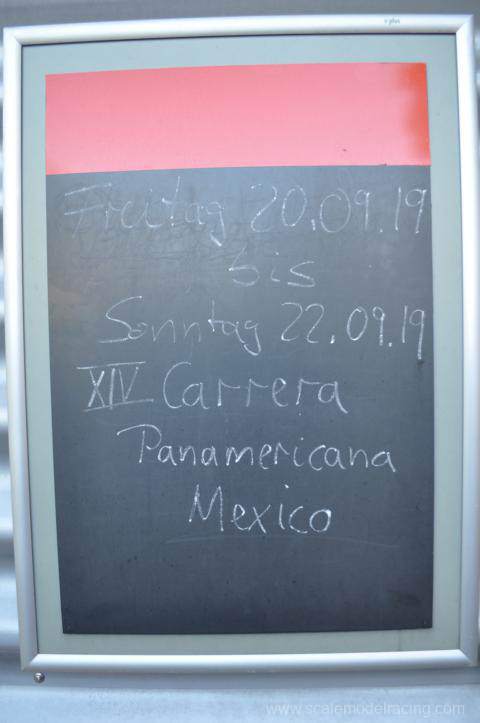 Freitag 20.09.19
bis
Sonntag 22.09.19
XIV Carrera
Panamericana
Mexico
www.scalemodelracing.com